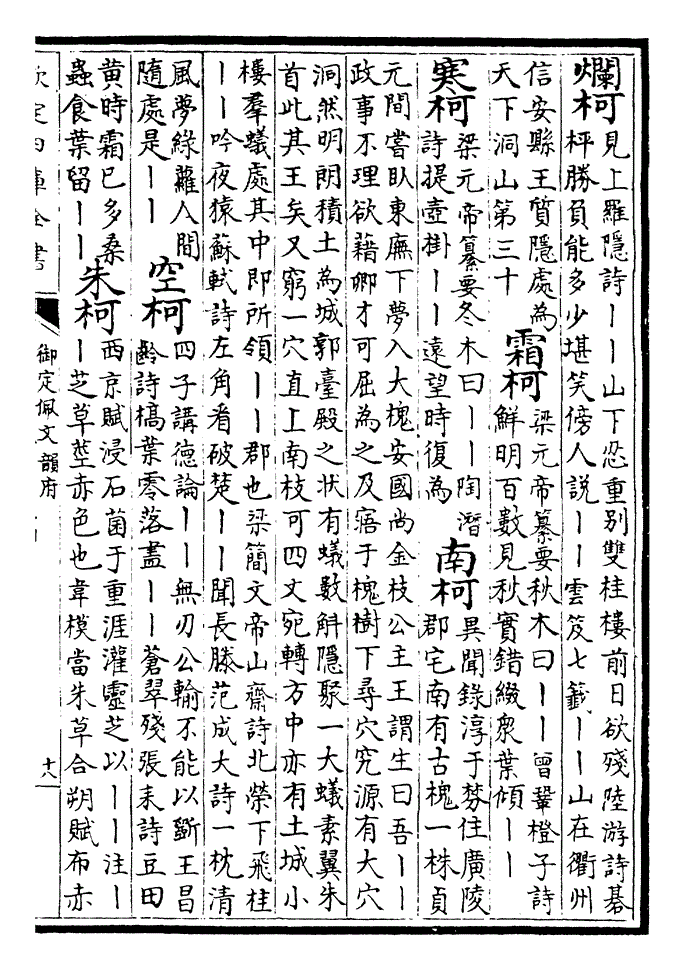 爛柯
見上羅隱詩丨丨山下忍重别雙桂樓前日欲殘陸游詩碁
枰勝負能多少堪笑傍人説丨丨雲笈七籤丨丨山在衢州
信安縣王質隱處為
天下洞山第三十
霜柯
梁元帝纂要秋木曰丨丨曾鞏橙子詩
鮮明百數見秋實錯綴衆葉傾丨丨
寒柯
梁元帝纂要冬木曰丨丨陶潛
詩提壺掛丨丨遠望時復為
南柯
異聞錄淳于棼住廣陵
郡宅南有古槐一株貞
元間嘗卧東廡下夢入大槐安國尚金枝公主王謂生曰吾丨丨
政事不理欲藉卿才可屈為之及寤于槐樹下尋穴究源有大穴
洞然明朗積土為城郭臺殿之狀有蟻數斛隱聚一大蟻素翼朱
首此其王矣又窮一穴直上南枝可四丈宛轉方中亦有土城小
樓羣蟻處其中即所領丨丨郡也梁簡文帝山齋詩北榮下飛桂
丨丨吟夜猿蘇軾詩左角看破楚丨丨聞長滕范成大詩一枕清
風夢綠蘿人間
隨處是丨丨
空柯
四子講德論丨丨無刃公輸不能以斵王昌
齡詩槁葉零落盡丨丨蒼翠殘張耒詩豆田
黄時霜已多桑
蟲食葉留丨丨
朱柯
西京賦浸石菌于重涯灌靈芝以丨丨注丨
丨芝草莖赤色也韋模當朱草合朔賦布赤
欽定四庫全書
御定佩文韻府
十八